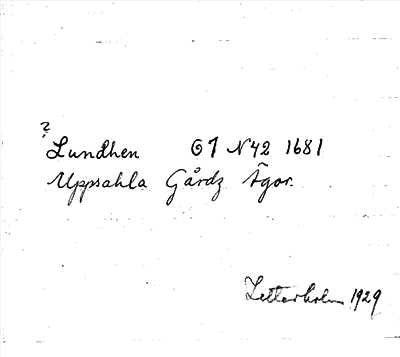 ?
Lundhen G1 N42 1681
Uppsahla Gårdz Ägor.
Zetterholm 1929